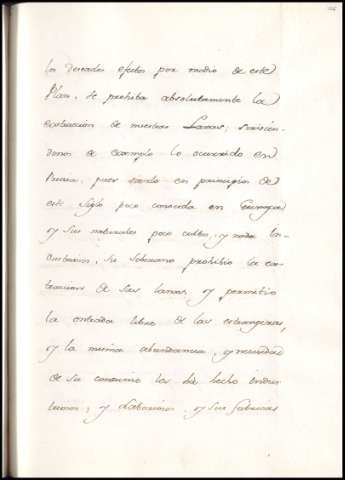 los deseados efectos por medio de este
Plan, se prohiba absolutamente la
extraccion de nuestras Lanas; sirvien-
donos de exemplo lo ocurrido en
Prusia, pues siendo en principios de
este Siglo poco conocida en Europa
y sus naturales poco cultos, y nada In-
dustriosos, su Soberano prohibio la ex-
traccion de sus lanas, y permitio
la entrada libre de las extrangeras,
y la misma abundancia, y necesidad
de su consumo los ha hecho indus-
triosos, y Laboriosos, y sus fabricas